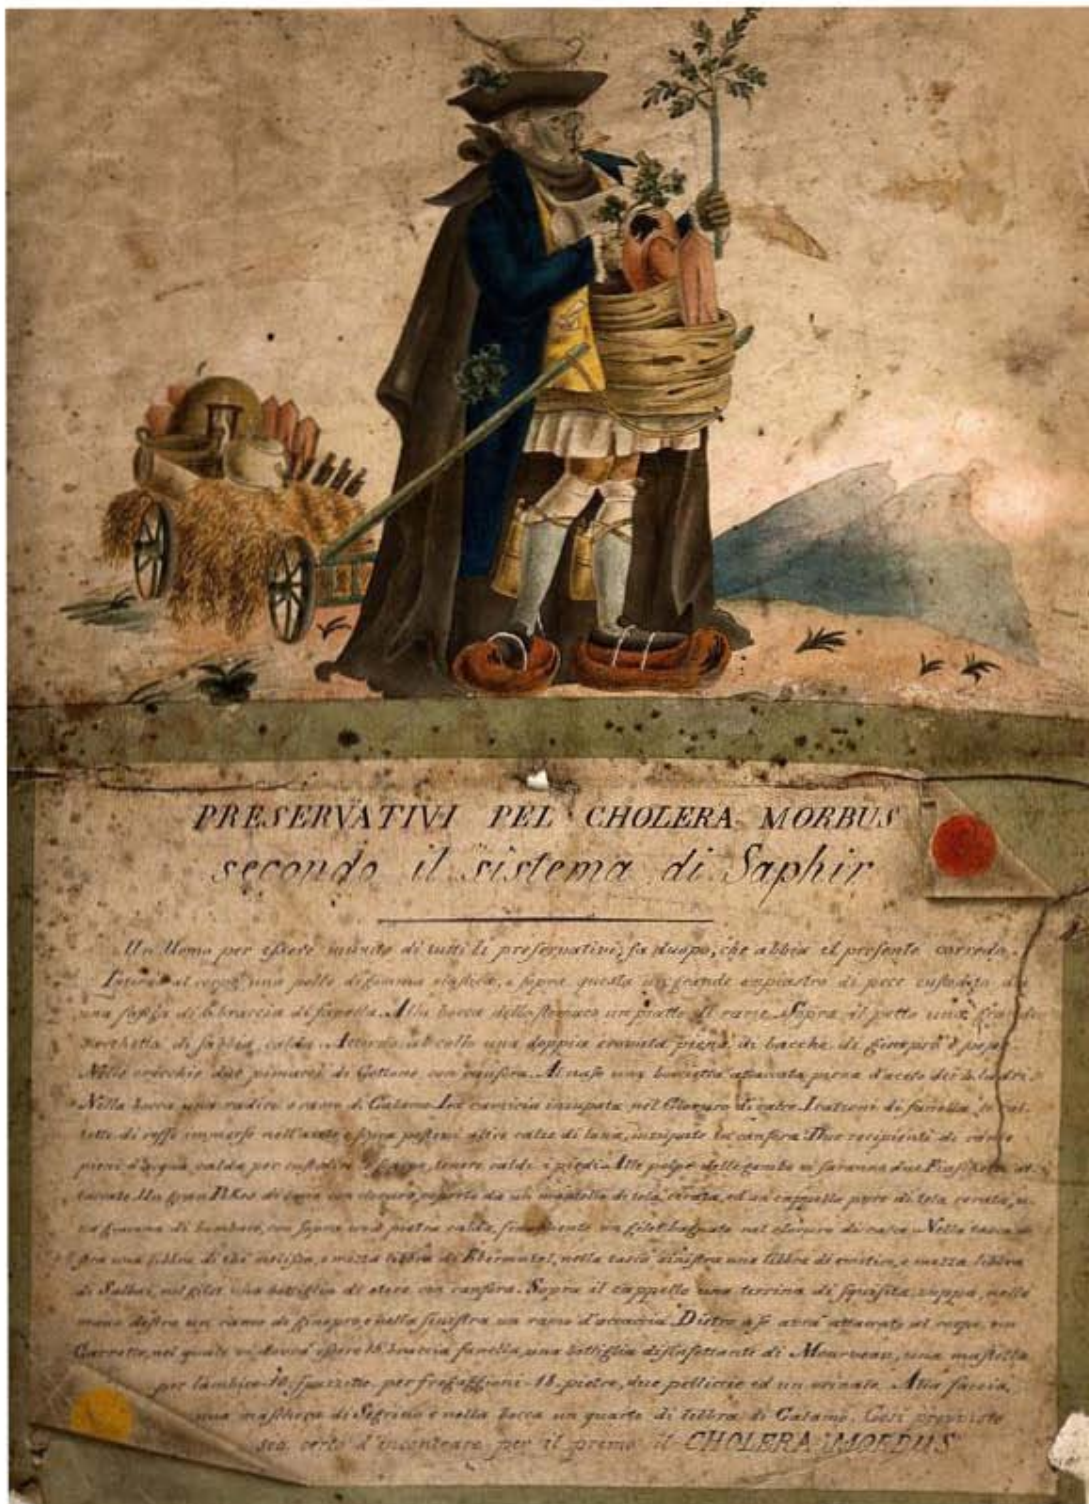 PRESERVATIVI PEL CHOLERA MORBUS
secondo il sistema di Saphir
Un Uomo per essere munito di tutti li preservativi, fa duopo, che abbia il presente corredo.
Intorno al corpo una pelle di gomma elastica, e sopra questa un grande empiastro di pece custodito da
una fascia di 6 braccia di fanella. Alla bocca dello stomaco un piatto di rame. Sopra il petto una grande
sacchetta di sabbia calda. Attorno al collo una doppia cravata piena di bacche di ginepro e pepe.
Nelle orecchie due piumacci di Cottone con canfora. Al naso una boccietta attaccata piena d'aceto dei 4 ladri.
Nella bocca una radice o ramo di Calamo. La camicia inzupata nel Cloruro di calce. I calzoni di fanella
di roffo immersi nell'aceto e sopra altre calze di lana, inzupate in canfora. Due recipienti di rame
pieni d'acqua calda per custodire le scarpe, tenere caldi i piedi. Alle polpe delle gambe vi saranno due
taccate. Un gran di lana con cloruro, coperto da un mantello di tela cerata, ed un cappello pure di tela cerata,
di bombace, con sopra una pietra calda, finalmente un gilet bagnato nel cloruro di calce. Nella tasca
una libbra di thé melissa, e mezza libbra di Ebermutzel, nella tasca sinistra una libbra di e mezza libbra
di Salbei, nel gilet una bottiglia di etere con canfora. Sopra il cappello una terrina di squisita zuppa, nella
mano destra un ramo di ginepro, e nella sinistra un ramo d'accaccia. Dietro a se avrà attaccato al corpo, un
Carretto, nel quale vi dovrà essere 15 braccia fanella, una bottiglia disinfettante di Mourveau, una mastella
per lambico 10 spazzette per freggagioni 18 pietre, due pelliccie ed un orinale. Alla faccia,
una maschera di e nella bocca un quarto di libbra di Calamo. Così provvisto
sea certo d'incontrare per il primo il CHOLERA MORBUS